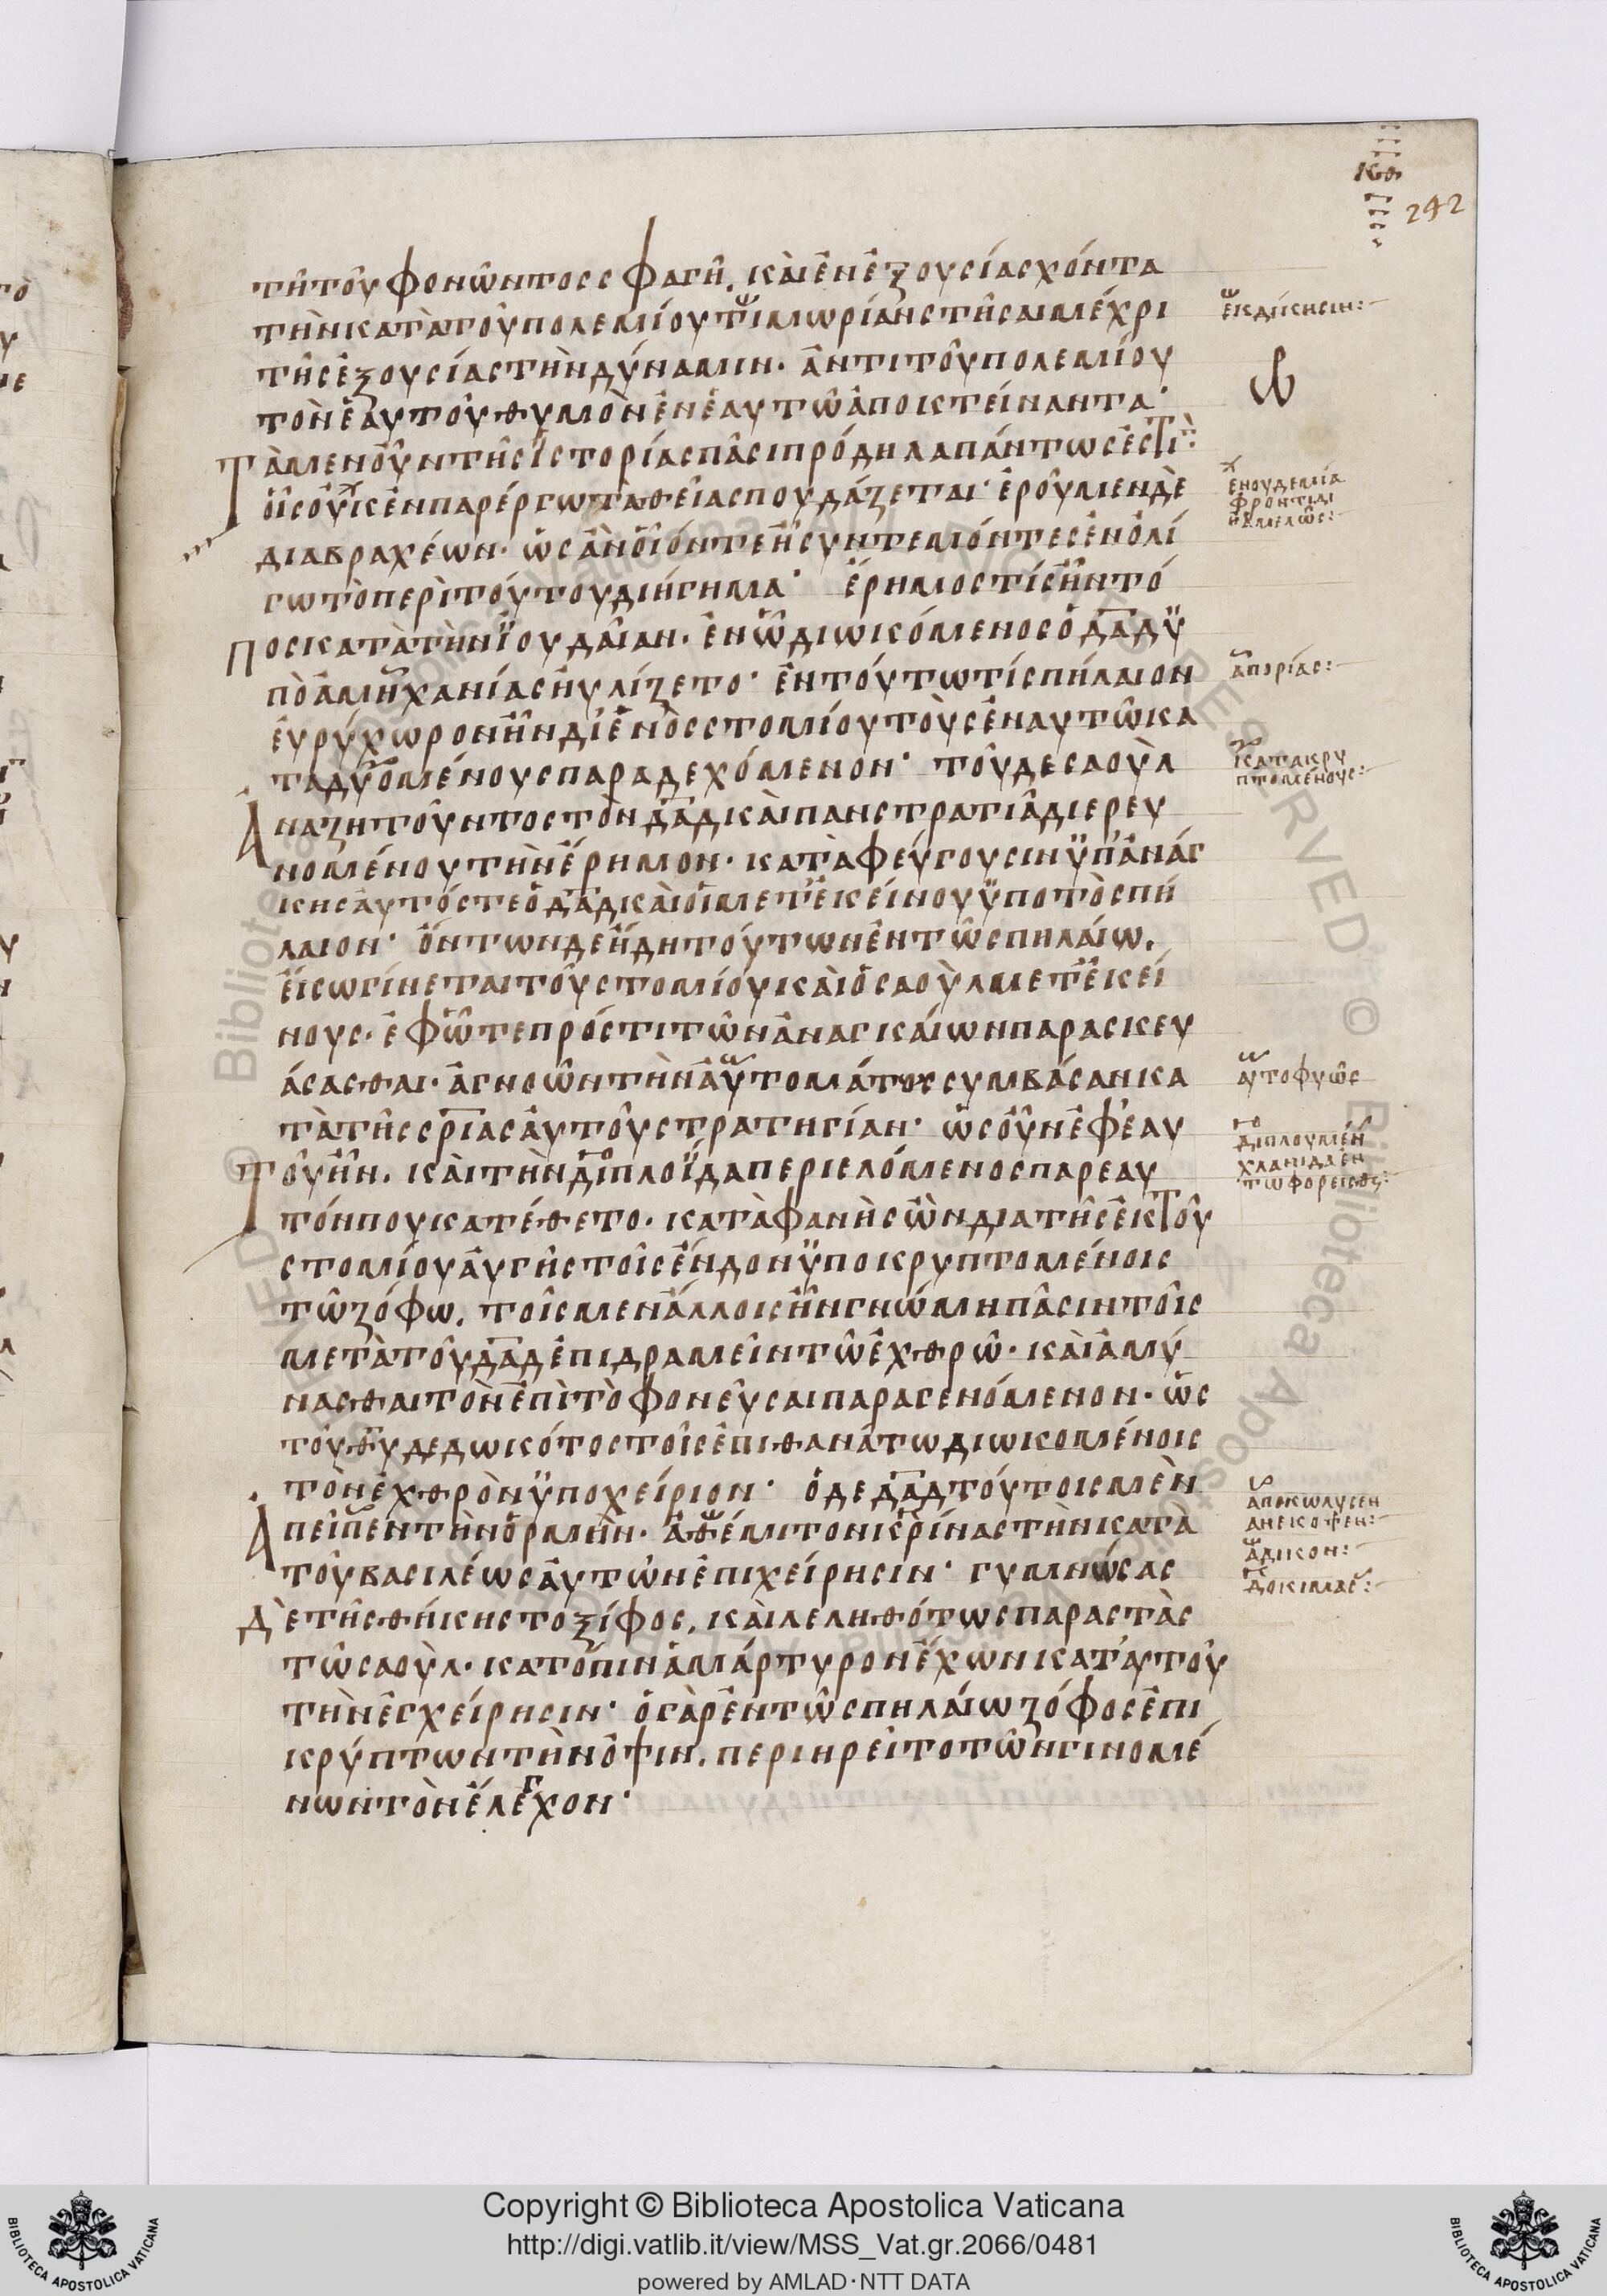 κθ
242
τῆ τοῦ φονῶντος σφαγῆ, καὶ ἐν ἐξουσία σχόντα
τὴν κατὰ τοῦ πολεμίου τιμωρίαν στῆσαι μέχρι
τῆς ἐξουσίας τὴν δύναμιν· ἀντι τοῦ πολεμίου
τὸν ἑαυτοῦ θυμὸν ἐν ἑαυτῶ ἀποκτείναντα·
Τὰ μεν οὖν τῆς ἱστορίας πᾶσι πρόδηλα πάντως ἐστὶ·
οἷς οὐκ ἐν παρέργω τὰ θεῖα σπουδάζεται· ἐροῦμεν δὲ
δια βραχέων· ὡς ἂν οἷόν τε ἦ συντεμόντες ἐν ὀλί
γω τὸ περὶ τούτου διήγημα· ἔρημος τίς ἦν τό
Πος κατὰ τὴν ἰουδαίαν· ἐν ὧ διωκόμενος ὁ δᾱδ ὑ
πὸ ἀμηχανίας ηὐλίζετο· ἐν τούτω τί σπήλαιον
εὐρύχωρον ἦν δι' ἑνὸς στομίου τοὺς ἐν αυτῶ κα
ταδυομένους παραδεχόμενον· τοῦ δε σαοὺλ
Ἀναζητοῦντος τὸν δᾱδ καὶ πανστρατιᾶ διερευ
νομένου τὴν ἔρημον· καταφεύγουσιν ὑπ' ἀνάγ
κης αὐτός τε ὁ δᾱδ καὶ οἱ μετ' ἐκείνου ὑπο τὸ σπή
λαιον· ὄντων δε ἤδη τούτων ἐν τῶ σπηλαίω,
εἴσω γίνεται τοῦ στομίου καὶ ὁ σαοὺλ μετ' ἐκεί
νους· ἐφ' ὧτε πρός τι τῶν ἀναγκαίων παρασκευ
άσασθαι· ἀγνοῶν τὴν αὐτομάτως συμβάσαν κα
τὰ τῆς σρ̄ιας αὐτοῦ στρατηγίαν· ὡς οὖν ἐφ' ἑαυ
Τοῦ ἦν, καὶ τὴν διπλοΐδα περιελόμενος παρ εαυ
τόν που κατέθετο· καταφανὴς ὢν δια τῆς ἐκ τοῦ
στομίου αὐγῆς τοῖς ἔνδον ὑποκρυπτομένοις
τῶ ζόφω, τοῖς μεν ἄλλοις ἦν γνώμη πᾶσιν τοῖς
μετὰ τοῦ δᾱδ ἐπιδραμεῖν τῶ ἐχθρῶ· καὶ ἀμύ
νασθαι τον ἐπὶ τὸ φονεῦσαι παραγενόμενον· ὡς
τοῦ θῡ δεδωκότος τοῖς ἐπι θανάτω διωκομένοις
τὸν ἐχθρὸν ὑποχείριον· ὁ δε δᾱδ τούτοις μὲν
Ἀπεῖπεν τὴν ὁρμὴν· ἀθέμιτον κρίνας τὴν κατὰ
τοῦ βασιλέως αὐτῶν ἐπιχείρησιν· γυμνώσας
Δὲ τῆς θήκης το ξίφος, καὶ λεληθότως παραστὰς
τῶ σαοὺλ· κατόπιν ἀμάρτυρον ἔχων κατ' αυτοῦ
τὴν ἐγχείρησιν· ὁ γὰρ ἐν τῶ σπηλαίω ζόφος ἐπι
κρύπτων τὴν ὄψιν, περιηρεῖτο τῶν γινομέ
νων τὸν ἔλεγχον·
ἐκδίκησιν:
ἐν ουδεμία
φροντιδι
ἠ ἀμελῶς:
ἀπορίας:
κατακρυ
πτομένους:
αυτοφυῶς
διπλουμέν
χλανίδα ἐν
τω φορεισθς:
απεκωλυσεν
ανεκοψεν:
ἄδικον:
δοκιμας:
Copyright © Biblioteca Apostolica Vaticana
http://digi.vatlib.it/view/MSS_Vat.gr.2066/0481
powered by AMLAD·NTT DATA
BIBLIOTECA APOSTOLICA VATICANA
BIBLIOTECA APOSTOLICA VATICANA